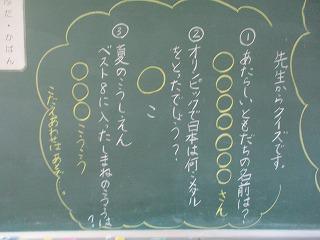 先生からクイズです。
①あたらしいともだちの名前は？
○○○○○○さん
②オリンピックで日本は何こメダル
をとったでしょう？
○こ
③夏のこうしえん
ベスト8に入ったしまねのこうこうは？
○○○こうこう
こたえあわせはあとで。
かばん